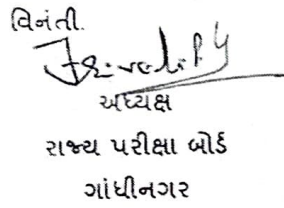 વિનંતી.
અધ્યક્ષ
રાજ્ય પરીક્ષા બોર્ડ
ગાંધીનગર